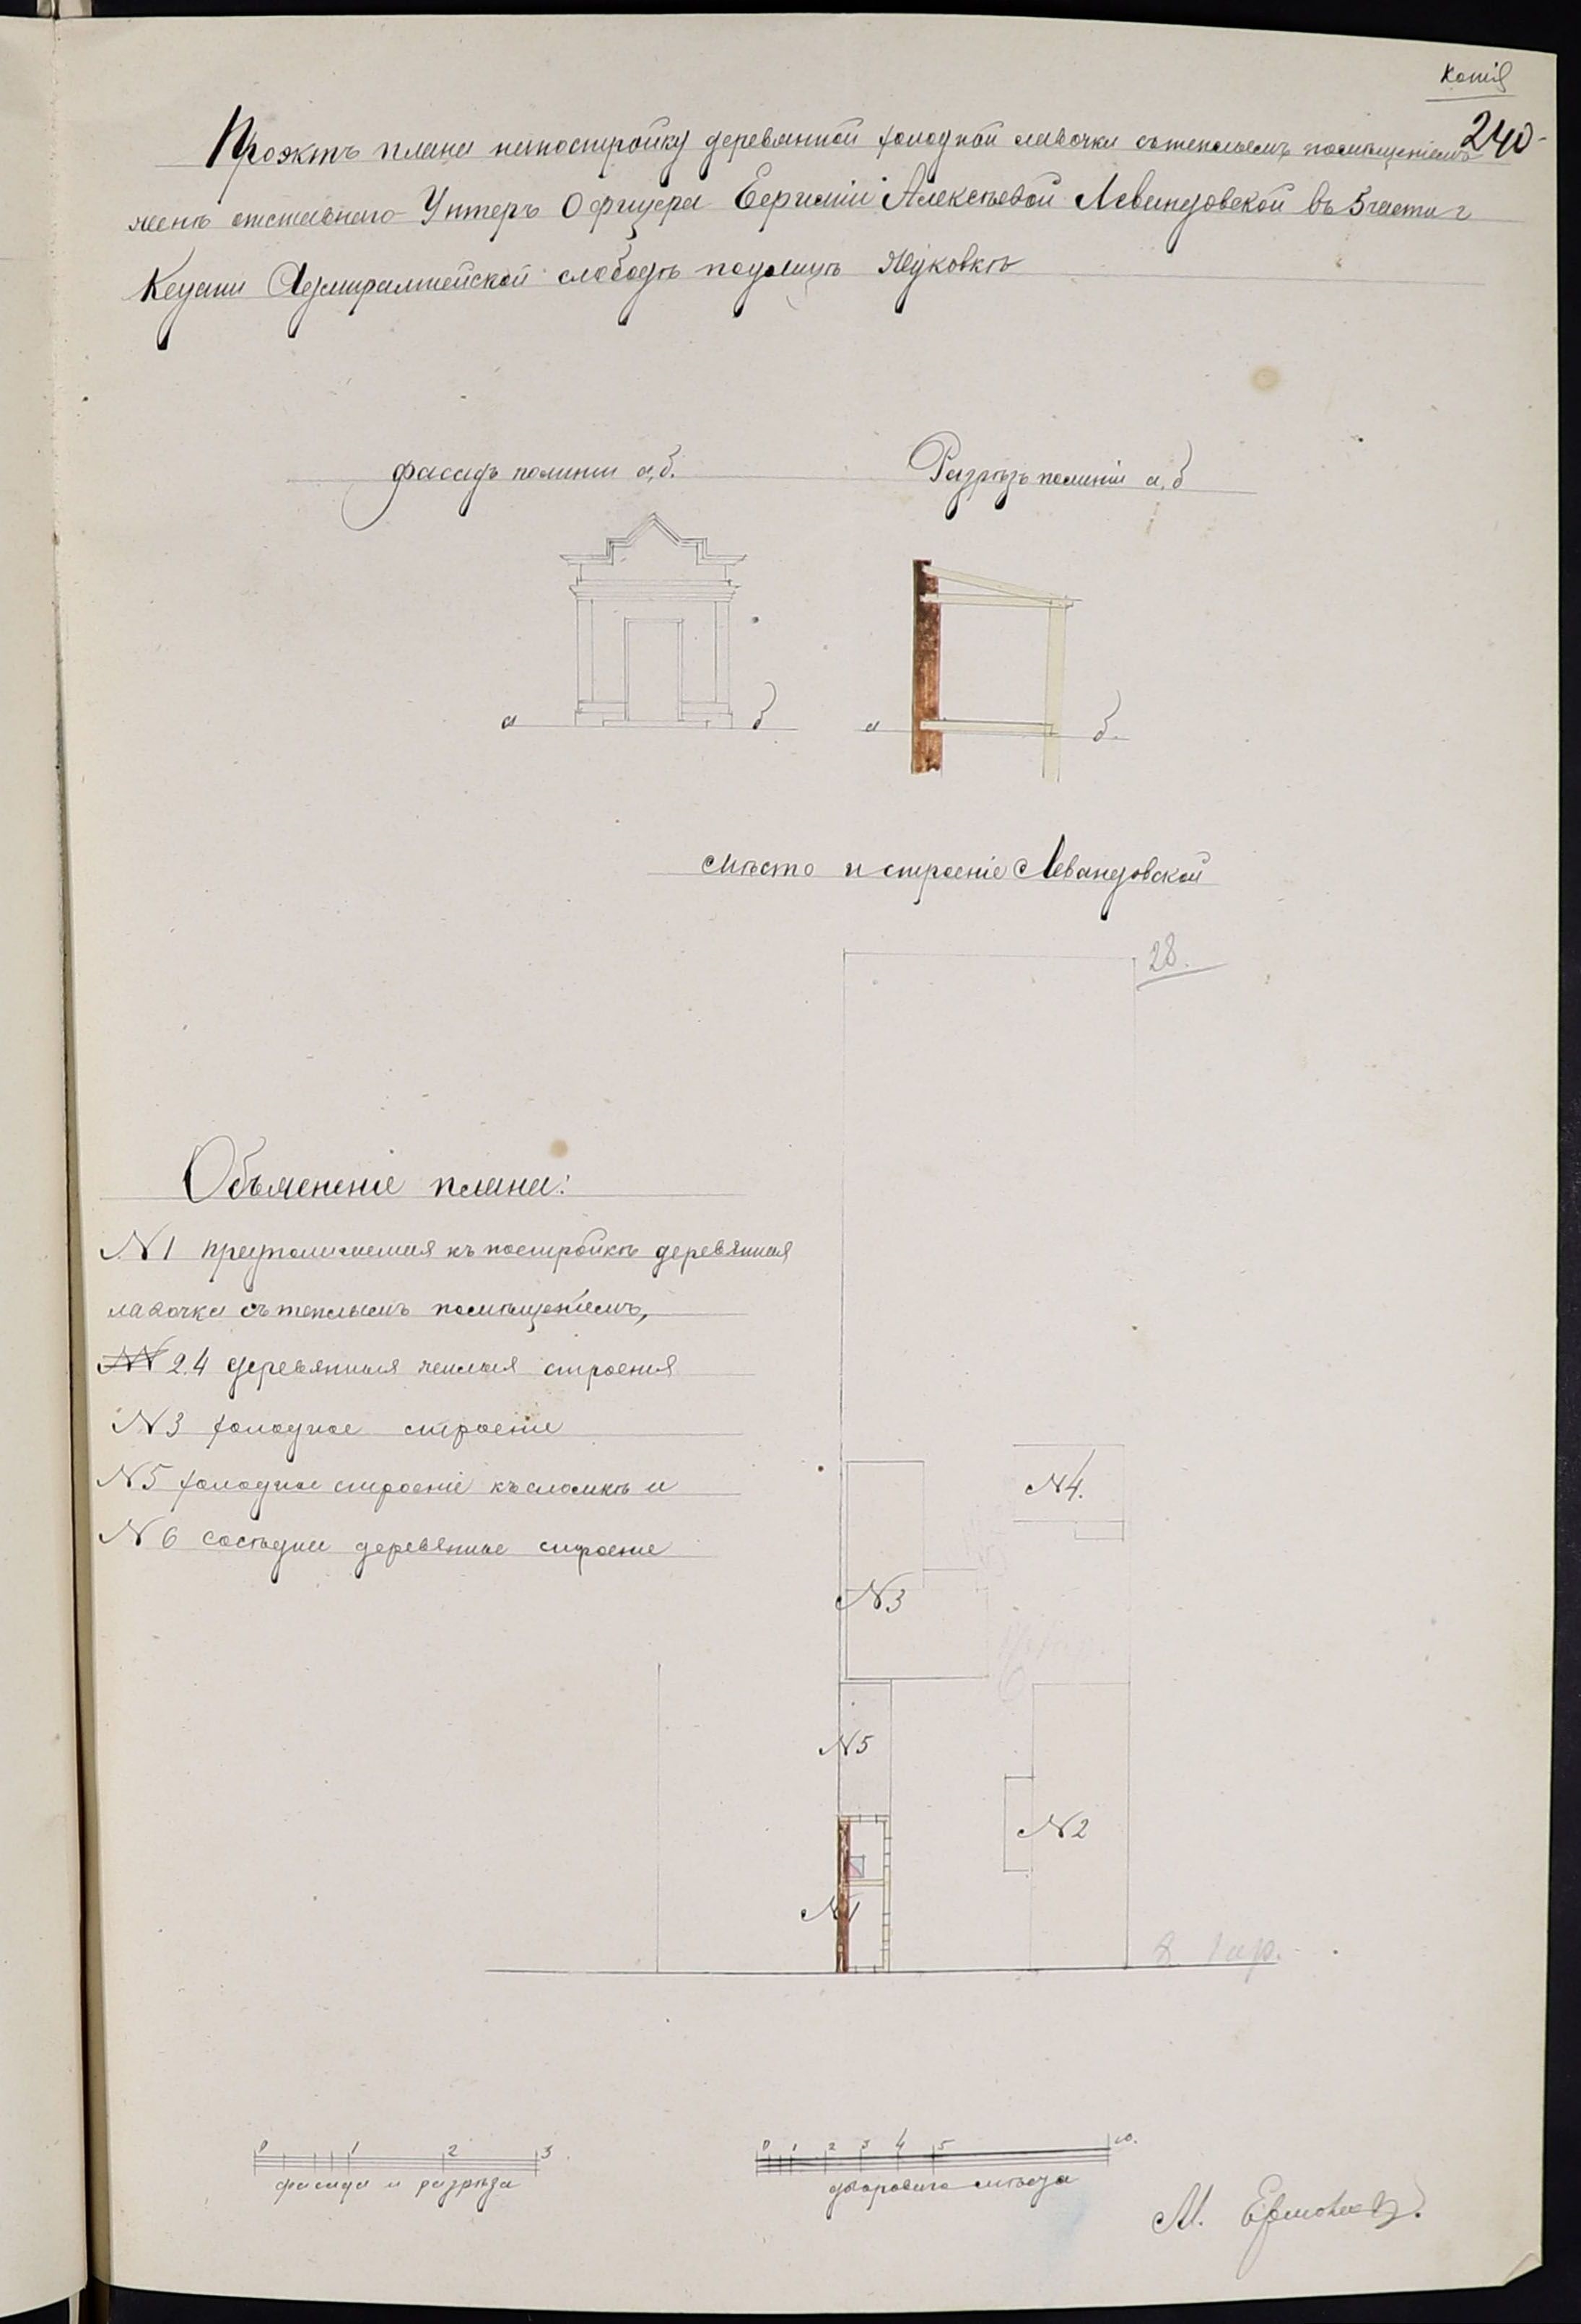 Копія
240
Проэктъ плана на постройку деревянной холодной лавочки съ теплымъ помѣщеніемъ
женѣ отставнаго Унтеръ Офицера Алексѣевой Левандовской въ 5 части г
Казани Адмиралтейской слободѣ по улицѣ
Фасадъ по линіи а, б.
Разрѣзъ по линіи а, б
а б
а б.
Мѣсто и строеніе Левандовской
28.
Объясненіе плана:
N 1 предполагаемая къ постройкѣ деревянная
лавочка съ теплымъ помѣщеніемъ,
NN 2.4 деревянныя жилыя строенія
N 3 холодное строеніе
N 5 холодное строеніе къ сломкѣ и
N 6 сосѣдния деревянное строеніе
N 4.
N 3
N 5
N 2
N 1
0 1 2 3
фасада и разрѣза
0 1 2 3 4 5 10.
двороваго мѣста
М.